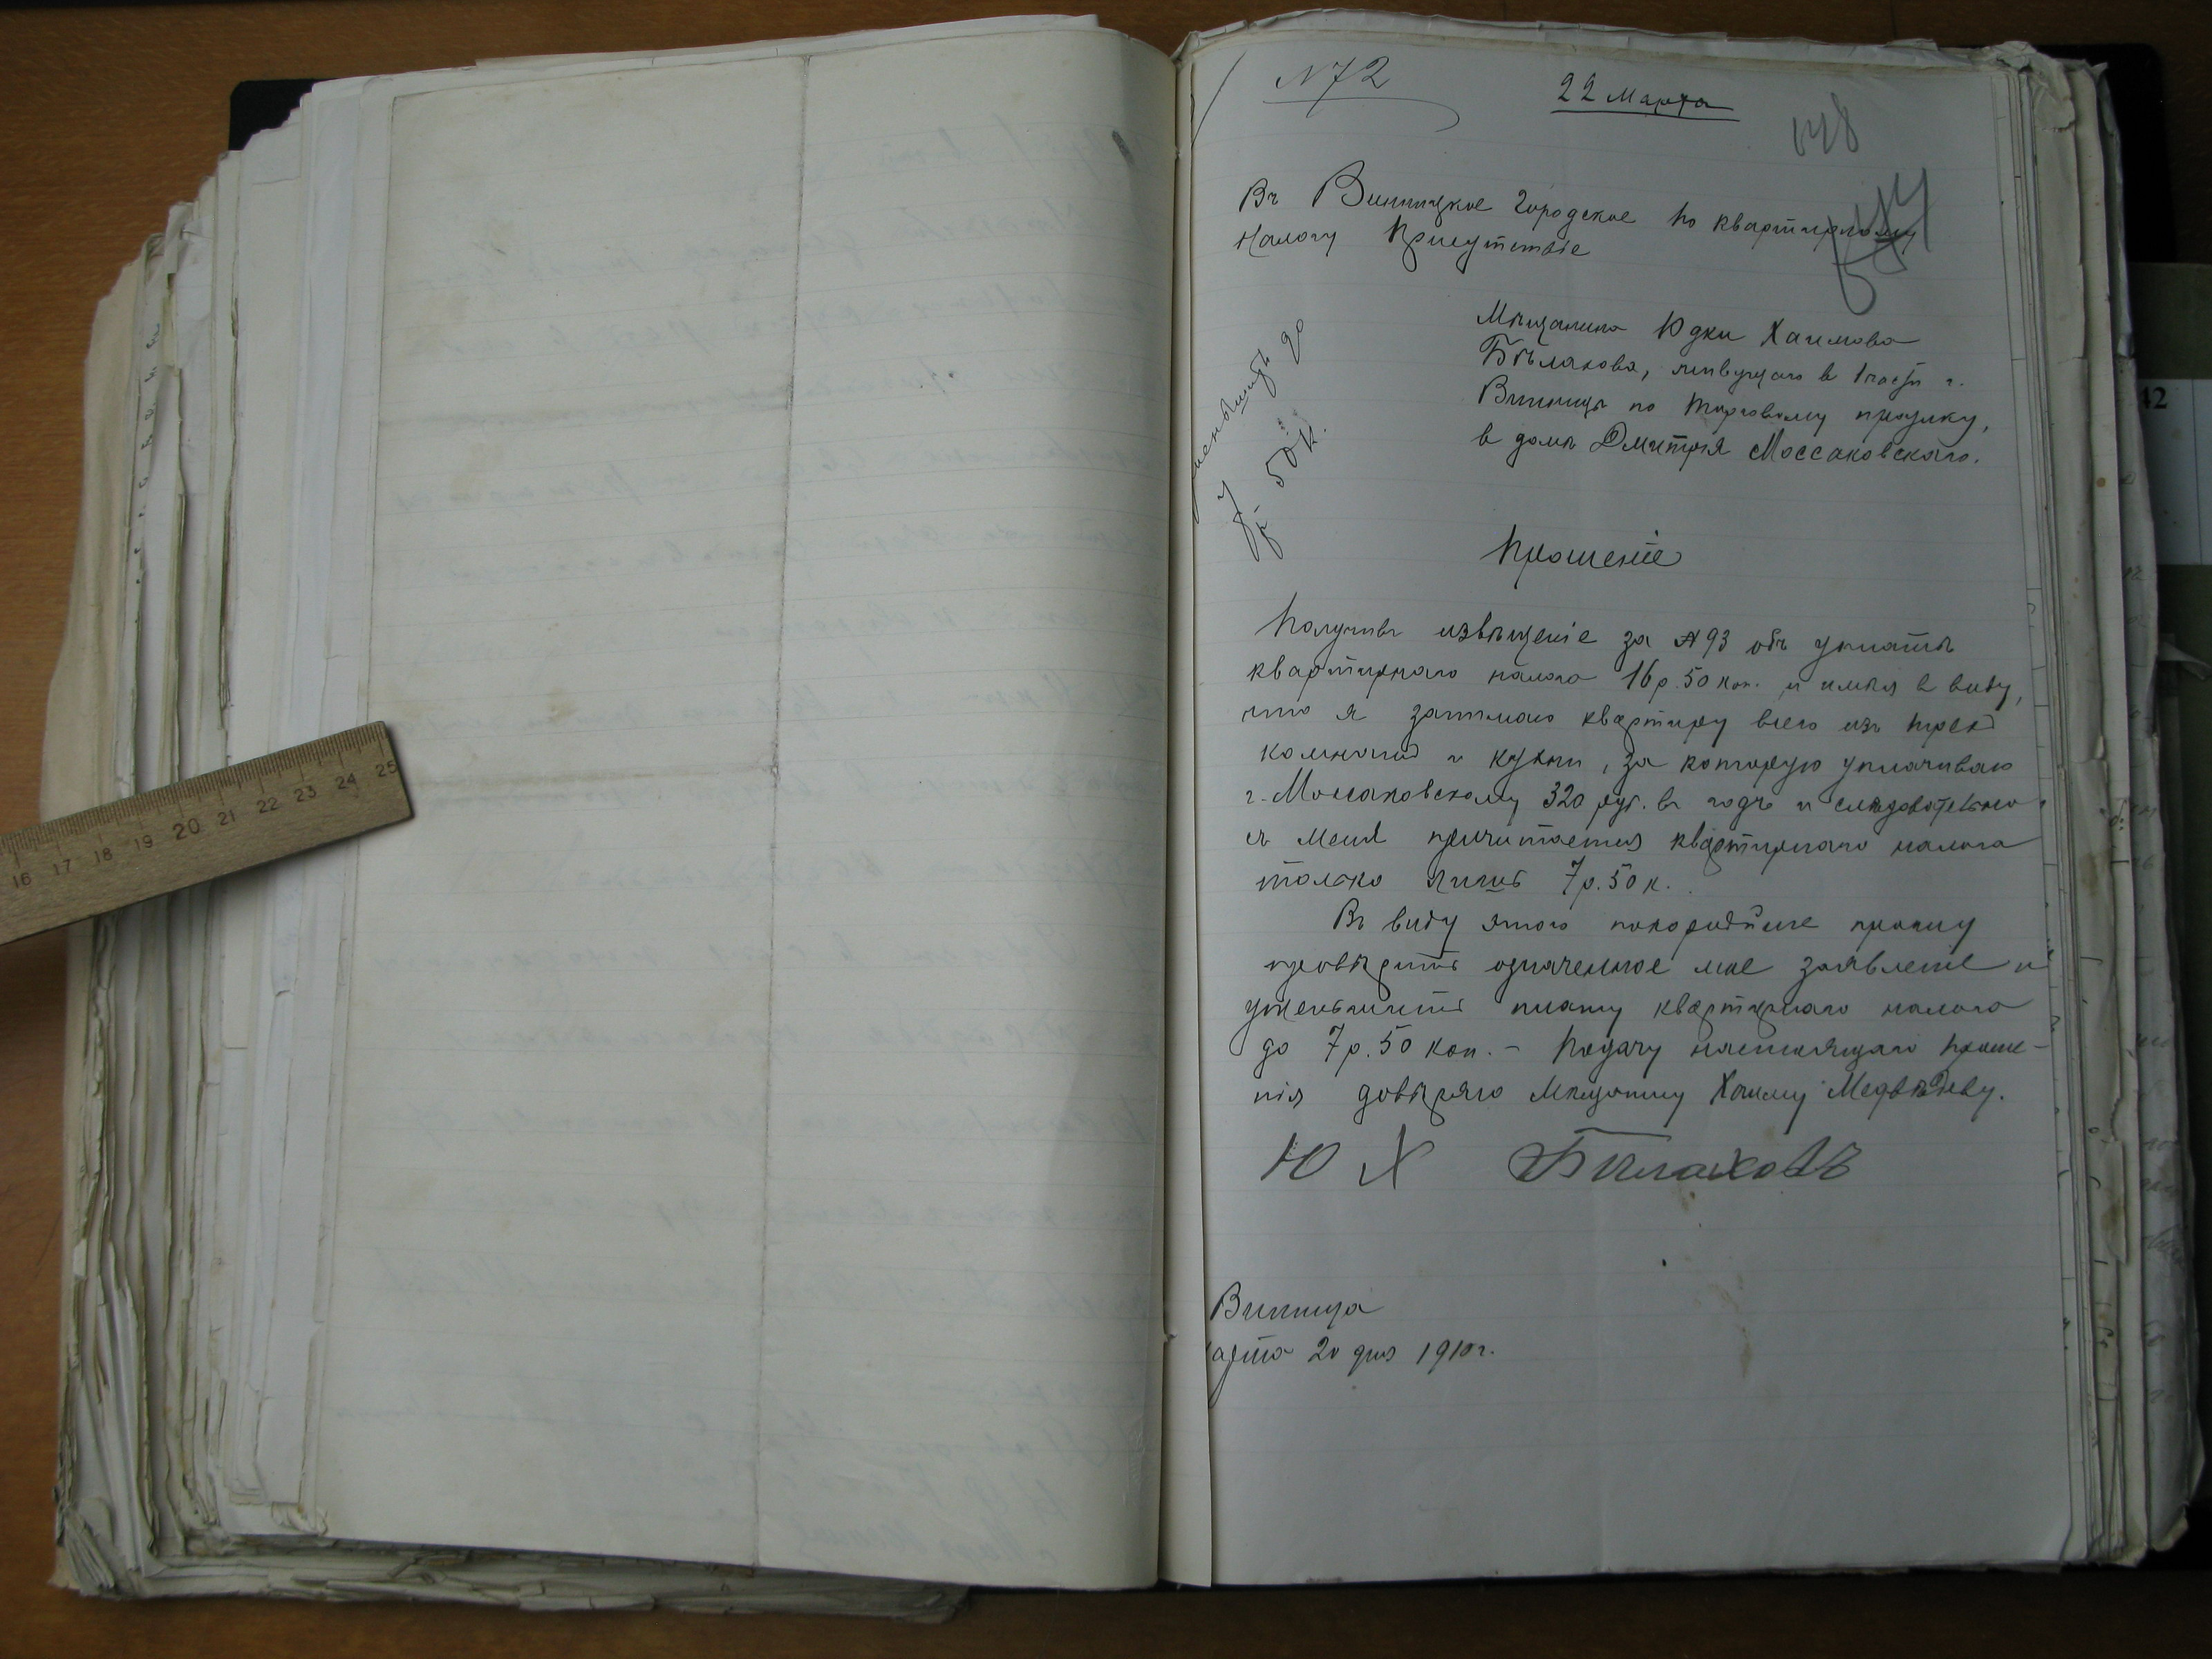 N 72
22 Марта
Въ Винницкое Городское по квартирному
Налогу Присутствіе
Мѣщанина Юдки Хаимова
Бѣлахова, живущаго в 1 части г.
Винницы по Торговому проулку,
в домѣ Дмитрія Моссаковскаго.
меньшить до
7 р. 50 к.
Прошеніе
Получивъ извѣщеніе за № 93 объ уплатѣ
квартирнаго налога 16 р. 50 коп. и имѣя в виду,
что я занимаю квартиру всего изъ трехъ
комнатъ и кухни, за которую уплачиваю
г. Моссаковскому 320 руб. въ годъ и слѣдовательно
съ меня причитается квартирнаго налога
только лишь 7 р. 50 к.
Въ виду этого покорнѣйше прошу
провѣрить означенное мое заявленіе и
уменьшить плату квартирнаго налога
до 7 р. 50 коп. - Подачу настоящаго проше-
нія довѣряю Мѣщанину Хаиму Медвѣдеву.
Ю Х Бѣлаховъ
Винница
арта 20 дня 1910 г.
16 17 18 19 20 21 22 23 24 25